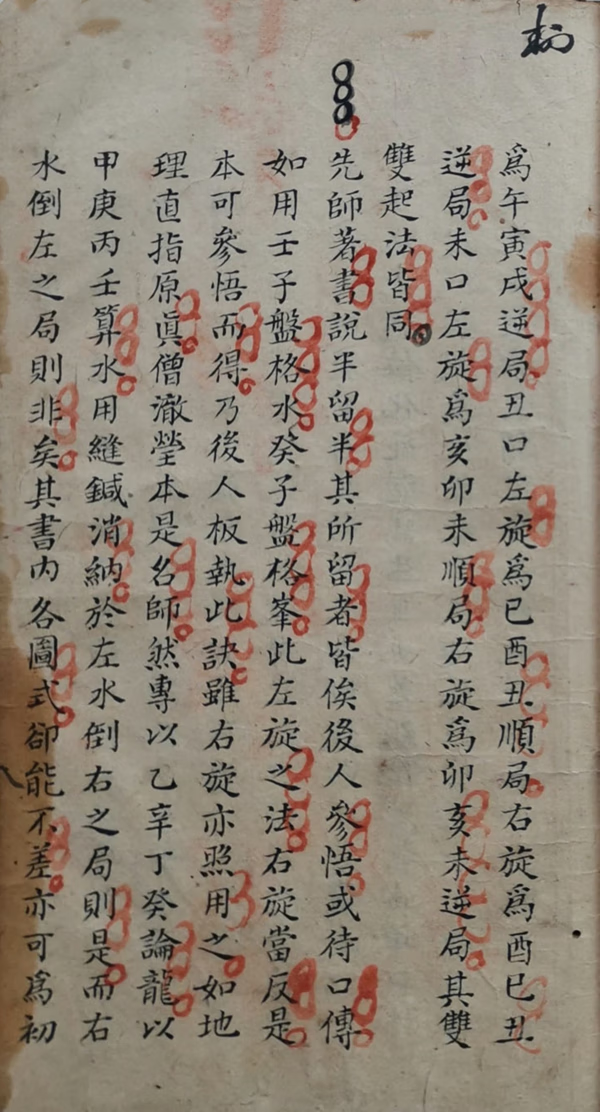 為午寅戌逆局丑口左旋為巳酉丑順局右旋為酉巳丑
逆局未口左旋為亥卯未順局右旋為卯亥未逆局其雙
雙起法皆同
先師著書說半留半其所留者皆俟後人參悟或待口傳
如用壬子盤格水癸子盤格峯此左旋之法右旋當反是
本可參悟而得乃後人板執此訣雖右旋亦照用之如地
理直指原眞僧澈瑩本是名師然專以乙辛丁癸論龍以
甲庚丙壬算水用縫鍼消納於左水倒右之局則是而右
水倒左之局則非矣其書內各圖式卻能不差亦可為初